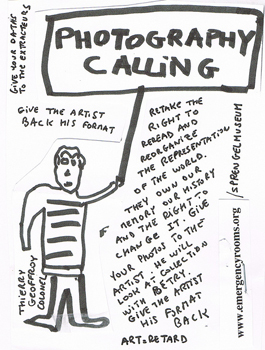 GIVE YOUR DATAS
TO THE EXTRACTEURS
PHOTOGRAPHY
CALLING
GIVE THE ARTIST
BACK HIS FORMAT
RETAKE THE
RIGHT TO
REREAD AND
REORGANIZE
THE REPRESENTATION
OF THE WORLD.
THEY OWN OUR
MEMORY OUR HISTORY
AND THE RIGHT TO
CHANGE IT. GIVE
YOUR PHOTOS TO THE
ARTIST - HE WILL
LOOK AT COLLECTION
WITH BETRY.
GIVE THE ARTIST
HIS FORMAT
BACK
/SPRENGELMUSEUM
www.emergencyrooms.org
THIERRY
GEOFFROY
COLONEL
ART:RETARD